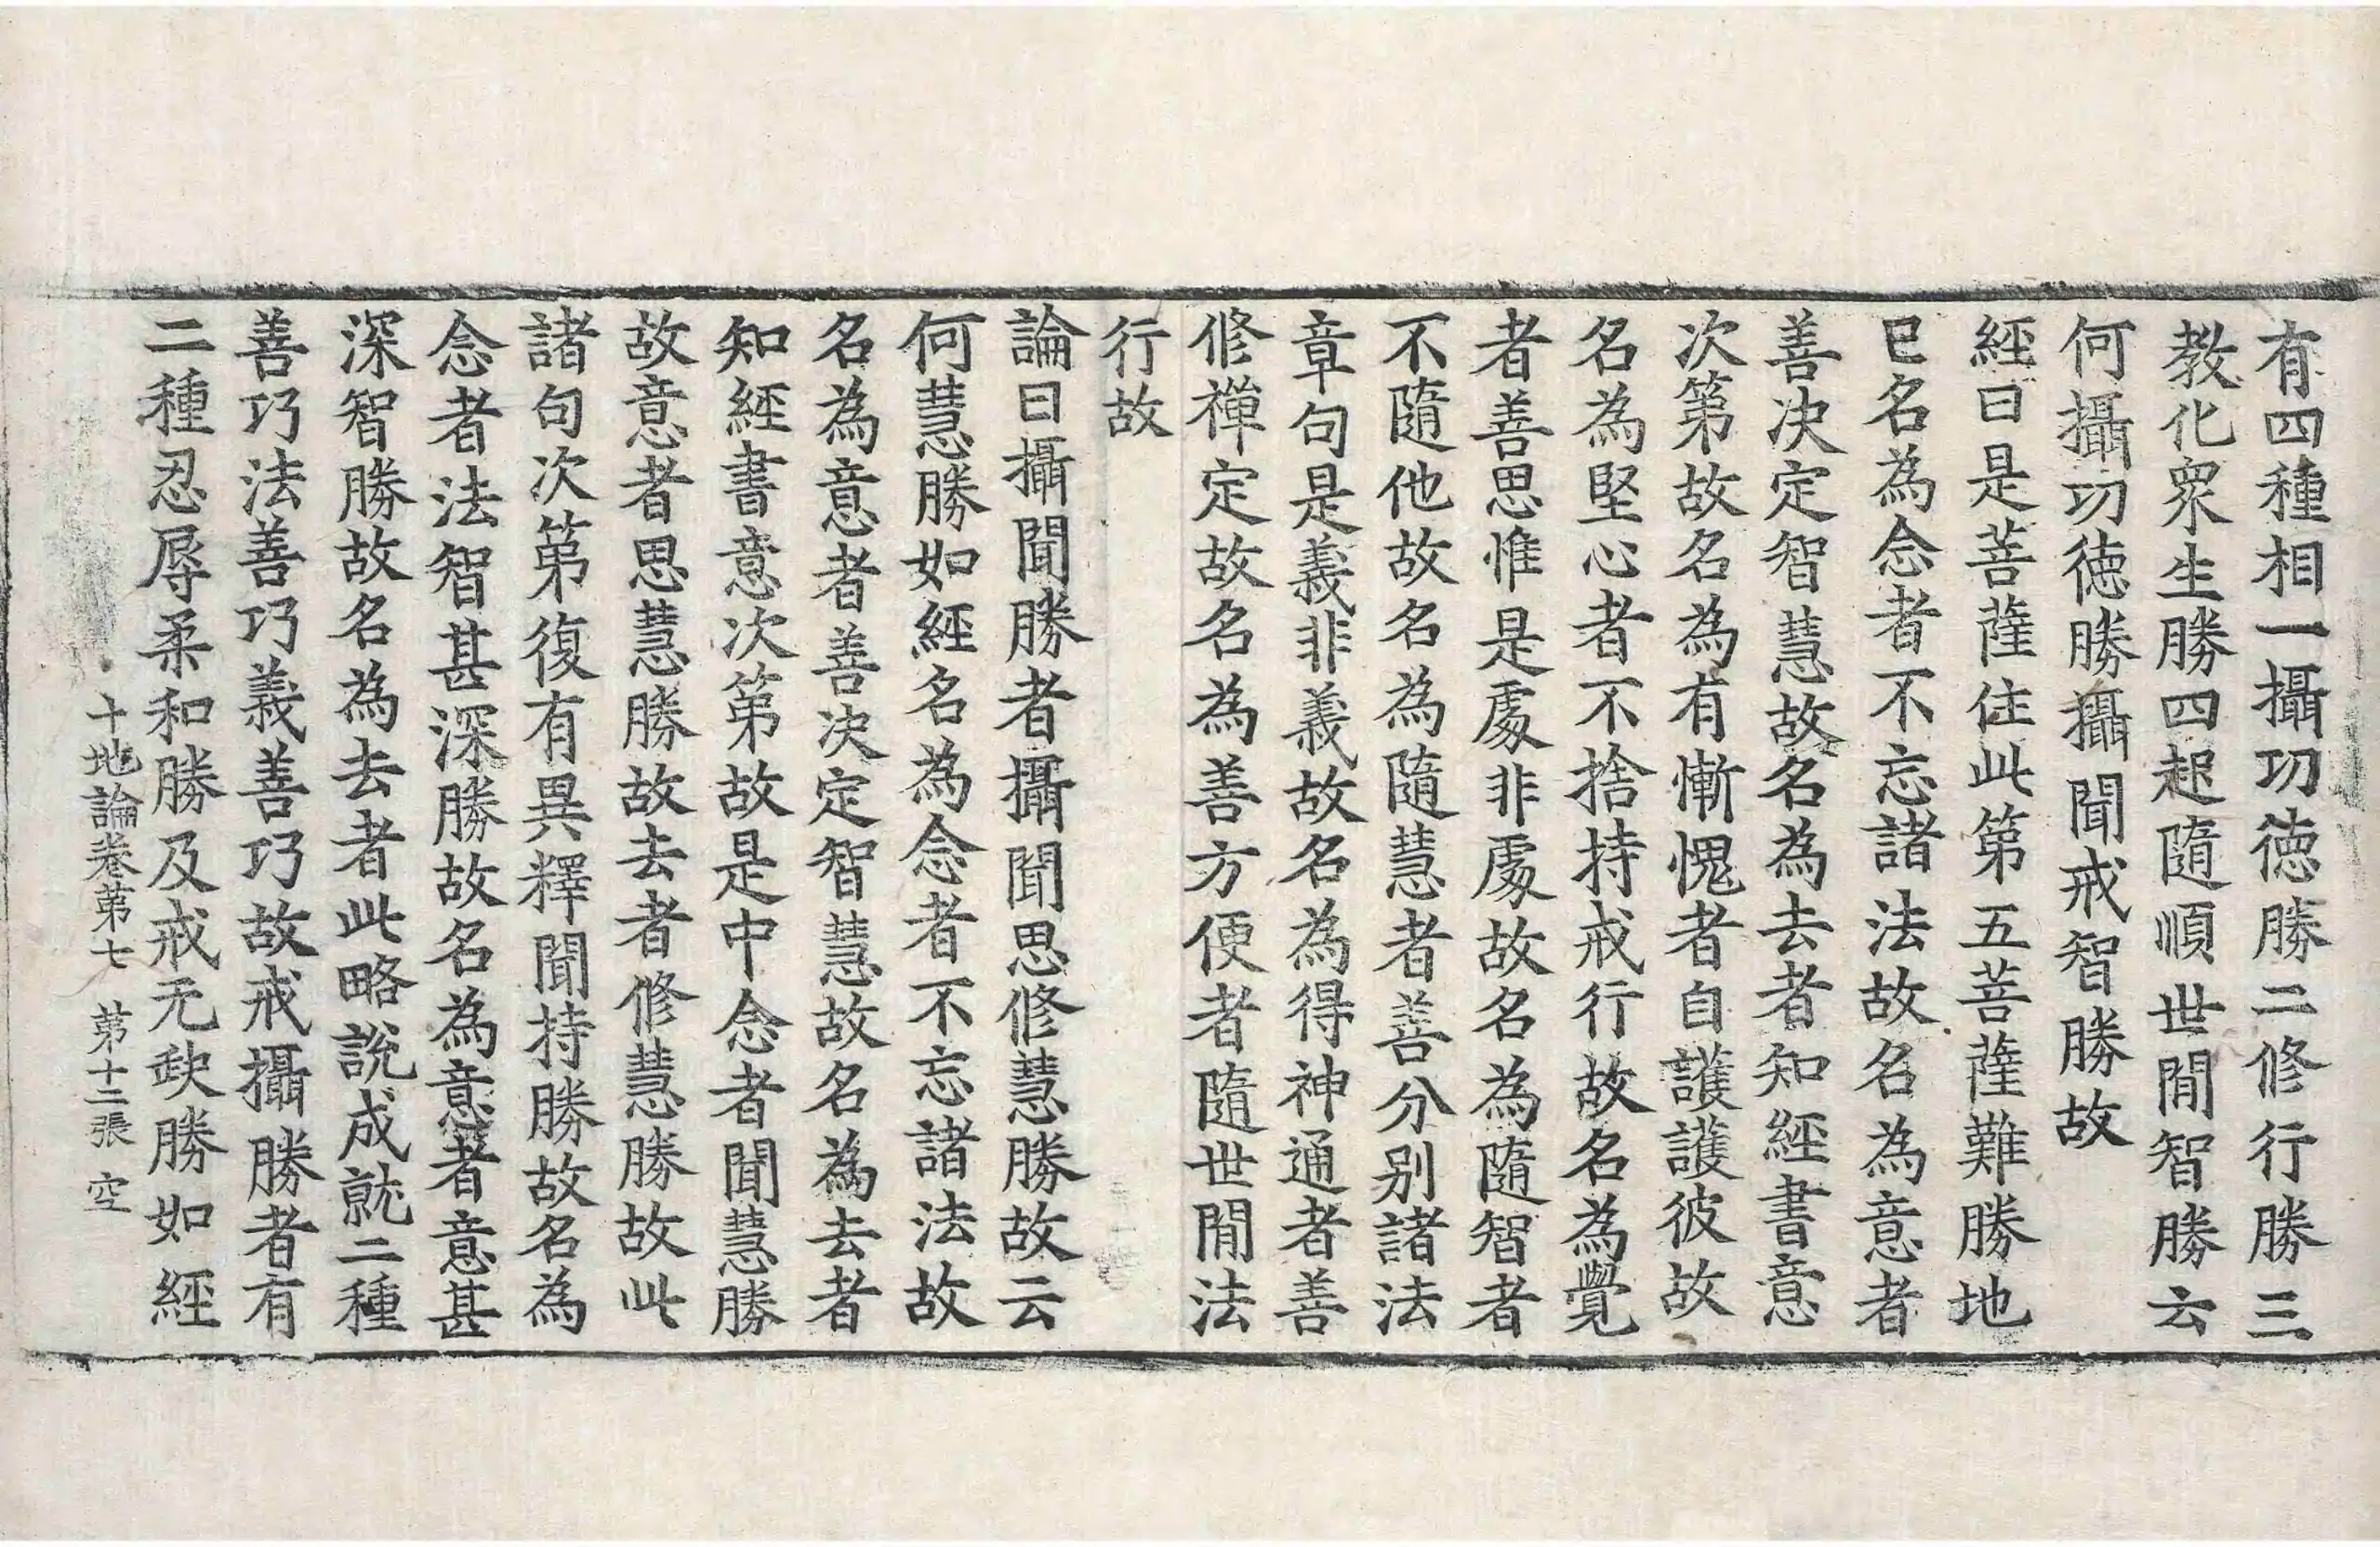 有四種相一攝功徳勝二修行勝三
教化衆生勝四起隨順世間智勝云
何攝功徳勝攝聞戒智勝故
經曰是菩薩住此第五菩薩難勝地
已名為念者不忘諸法故名為意者
善決定智慧故名為去者知經書意
次第故名為有慚愧者自護護彼故
名為堅心者不捨持戒行故名為覺
者善思惟是處非處故名為隨智者
不隨他故名為隨慧者善分別諸法
章句是義非義故名為得神通者善
修禪定故名為善方便者隨世間法
行故
論曰攝聞勝者攝聞思修慧勝故云
何慧勝如經名為念者不忘諸法故
名為意者善決定智慧故名為去者
知經書意次第故是中念者聞慧勝
故意者思慧勝故去者修慧勝故此
諸句次第復有異釋聞持勝故名為
念者法智甚深勝故名為意者意甚
深智勝故名為去者此略說成就二種
善巧法善巧義善巧故戒攝勝者有
二種忍辱柔和勝及戒无缺勝如經
十地論卷第七 第十二張 空